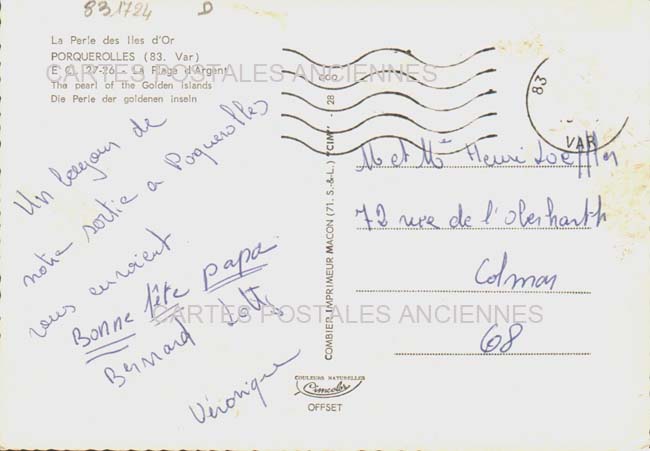 831724 D
La Perle des Iles d'Or
PORQUEROLLES (83. Var)
E C. 27-26 - La Plage d'Argent
The pearl of the Golden islands
Die Perle der goldenen inseln
CARTES POSTALES ANCIENNES
83
VAR
Un bonjour de
notre sortie a Porquerolles
vous envoient
BONNE fête papa
Bernard
Véronique
COMBIER IMPRIMEUR MACON (71. S.-&-L.) "CIM" - 28
M et Me Henri Loeffler
72 rue de l'Oberharth
Colmar
68
CARTES POSTALES ANCIENNES
COULEURS NATURELLES
Cimcolor
OFFSET